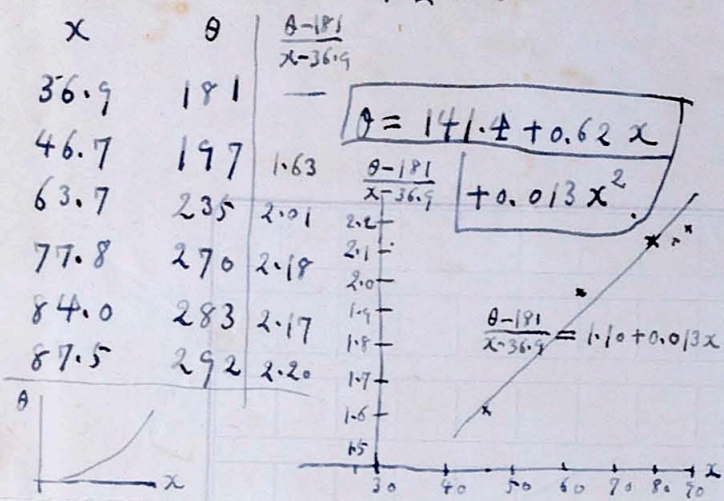 x θ θ-181/x-36.9
36.9 181 —
46.7 197 1.63
63.7 235 2.01
77.8 270 2.18
84.0 283 2.17
87.5 292 2.20
θ = 141.4 + 0.62 x
+ 0.013 x²
θ-181/x-36.9
2.2
2.1
2.0
1.9
1.8
1.7
1.6
1.5
θ-181/x-36.9 = 1.10 + 0.013x
30 40 50 60 70 80 90 x
θ
x